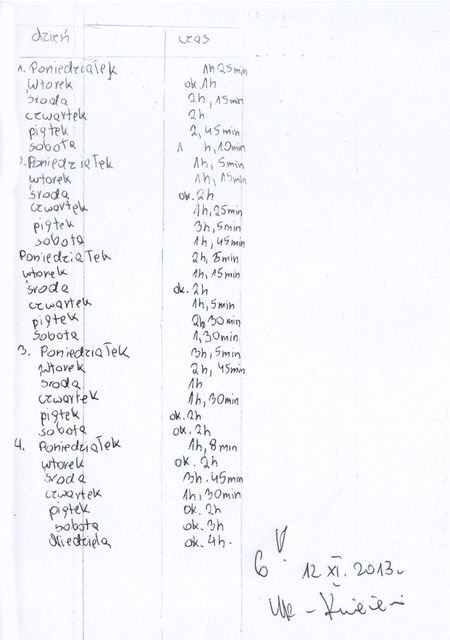 dzień czas
1. Poniedziałek 1h 25min
Wtorek ok. 1h
Środa 2h, 15min
czwartek 2h
piątek 2, 45min
sobota 1 h, 10min
2. Poniedziałek 1h, 5min
wtorek 1h, 15min
środa ok. 2h
czwartek 1h, 25min
piątek 3h, 5min
sobota 1h, 45min
Poniedziałek 2h, 5min
wtorek 1h, 15min
środa ok. 2h
czwartek 1h, 5min
piątek 2h 30min
sobota 1,30min
3. Poniedziałek 3h, 5min
Wtorek 2h, 45min
środa 1h
czwartek 1h, 30min
piątek ok. 2h
sobota ok. 2h
4. Poniedziałek 1h, 8min
wtorek ok. 2h
środa 3h. 45min
czwartek 1h, 30min
piątek ok. 2h
sobota ok. 3h
Niedziela ok. 4h.
6
12 XI. 2013r